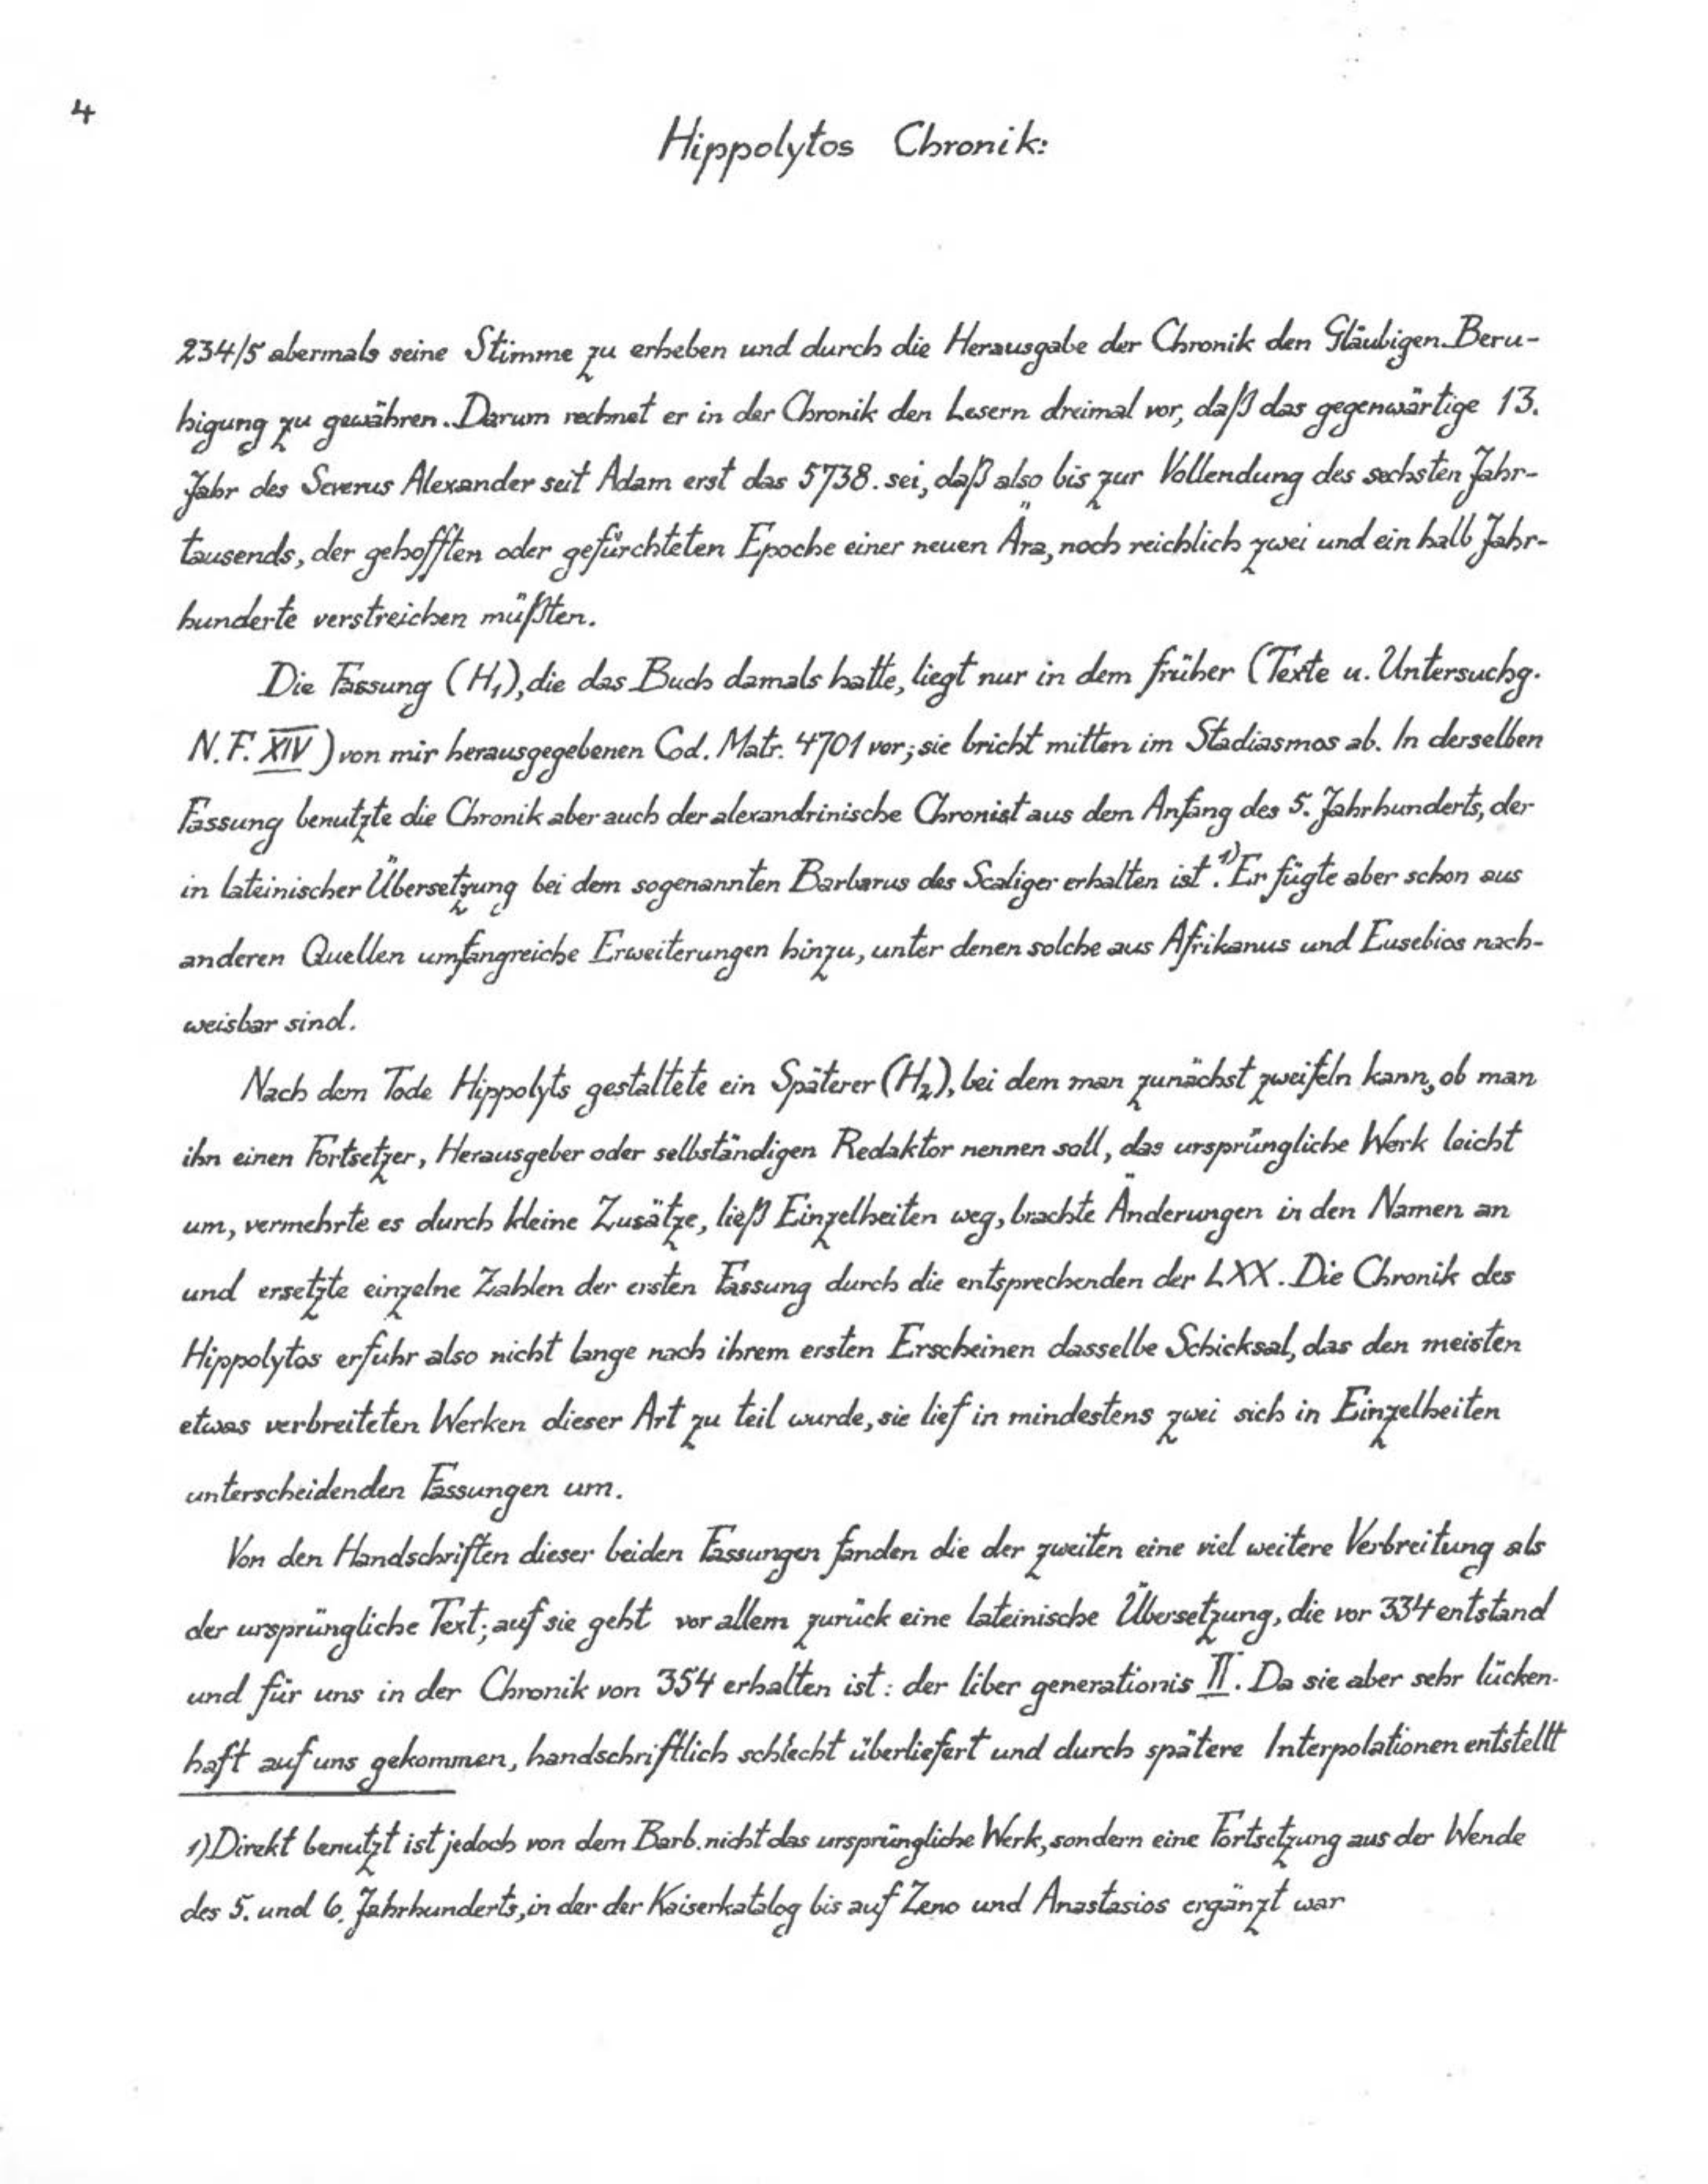 4
Hippolytos Chronik:
234/5 abermals seine Stimme zu erheben und durch die Herausgabe der Chronik den Gläubigen Beru-
higung zu gewähren. Darum rechnet er in der Chronik den Lesern dreimal vor, daß das gegenwärtige 13.
Jahr des Severus Alexander seit Adam erst das 5738. sei, daß also bis zur Vollendung des sechsten Jahr-
tausends, der gehofften oder gefürchteten Epoche einer neuen Ära, noch reichlich zwei und ein halb Jahr-
hunderte verstreichen müßten.
Die Fassung (H₁), die das Buch damals hatte, liegt nur in dem früher (Texte u. Untersuchg.
N.F. XIV) von mir herausgegebenen Cod. Matr. 4701 vor; sie bricht mitten im Stadiasmos ab. In derselben
Fassung benutzte die Chronik aber auch der alexandrinische Chronist aus dem Anfang des 5. Jahrhunderts, der
in lateinischer Übersetzung bei dem sogenannten Barbarus des Scaliger erhalten ist.¹⁾ Er fügte aber schon aus
anderen Quellen umfangreiche Erweiterungen hinzu, unter denen solche aus Afrikanus und Eusebios nach-
weisbar sind.
Nach dem Tode Hippolyts gestaltete ein Späterer (H₂), bei dem man zunächst zweifeln kann, ob man
ihn einen Fortsetzer, Herausgeber oder selbständigen Redaktor nennen soll, das ursprüngliche Werk leicht
um, vermehrte es durch kleine Zusätze, ließ Einzelheiten weg, brachte Änderungen in den Namen an
und ersetzte einzelne Zahlen der ersten Fassung durch die entsprechenden der LXX. Die Chronik des
Hippolytos erfuhr also nicht lange nach ihrem ersten Erscheinen dasselbe Schicksal, das den meisten
etwas verbreiteten Werken dieser Art zu teil wurde, sie lief in mindestens zwei sich in Einzelheiten
unterscheidenden Fassungen um.
Von den Handschriften dieser beiden Fassungen fanden die der zweiten eine viel weitere Verbreitung als
der ursprüngliche Text; auf sie geht vor allem zurück eine lateinische Übersetzung, die vor 334 entstand
und für uns in der Chronik von 354 erhalten ist: der liber generationis II. Da sie aber sehr lücken-
haft auf uns gekommen, handschriftlich schlecht überliefert und durch spätere Interpolationen entstellt
1) Direkt benutzt ist jedoch von dem Barb. nicht das ursprüngliche Werk, sondern eine Fortsetzung aus der Wende
des 5. und 6. Jahrhunderts, in der der Kaiserkatalog bis auf Zeno und Anastasios ergänzt war